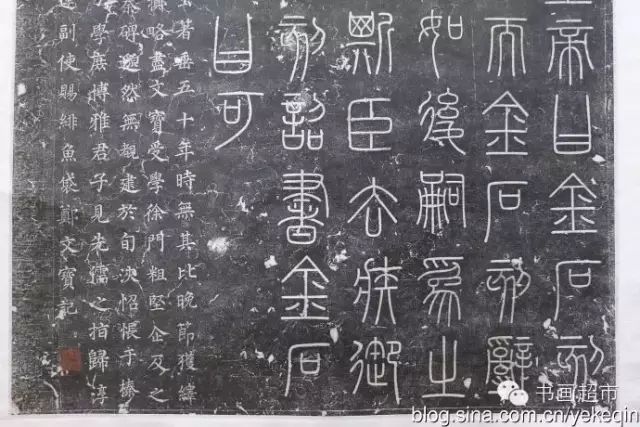 帝曰金石刻
而金石刻辭
如後嗣為之
斯臣去疾御
刻詔書金石
曰可
著垂五十年時無其比晚節獲繹
擲略盡文寶受學徐門粗堅企及之
秦碑邈然無覩逮於旬浹怊悵于榛
學庶博雅君子見先儒之指歸淳
運副使賜緋魚袋鄭文寶記
书画超市
blog.sina.com.cn/yekeqin